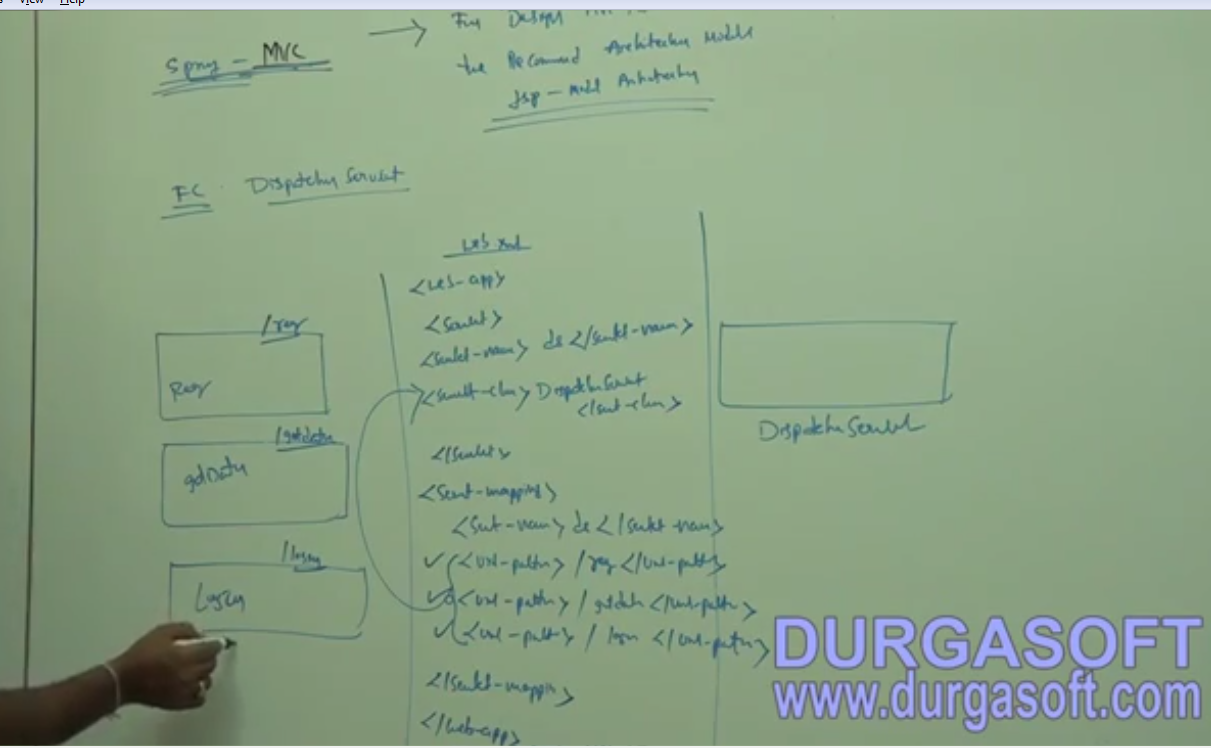 View Help
Spring - MVC
For Design
the Recommend Architecture Model
Jsp - Model Architecture
FC : Dispatcher Servlet
Web xml
<web-app>
<servlet>
<servlet-name> ds </servlet-name>
<servlet-class> DispatcherServlet
</servlet-class>
</servlet>
<servlet-mapping>
<servlet-name> ds </servlet-name>
<url-pattern> /reg </url-pattern>
<url-pattern> /getdata </url-pattern>
<url-pattern> / login </url-pattern>
</servlet-mapping>
</web-app>
/reg
Reg
/getdata
getData
/login
Login
DispatcherServlet
DURGASOFT
www.durgasoft.com